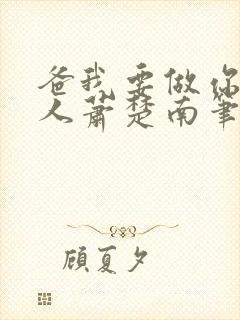 爸我要做你
人萧楚南笔
顾夏夕